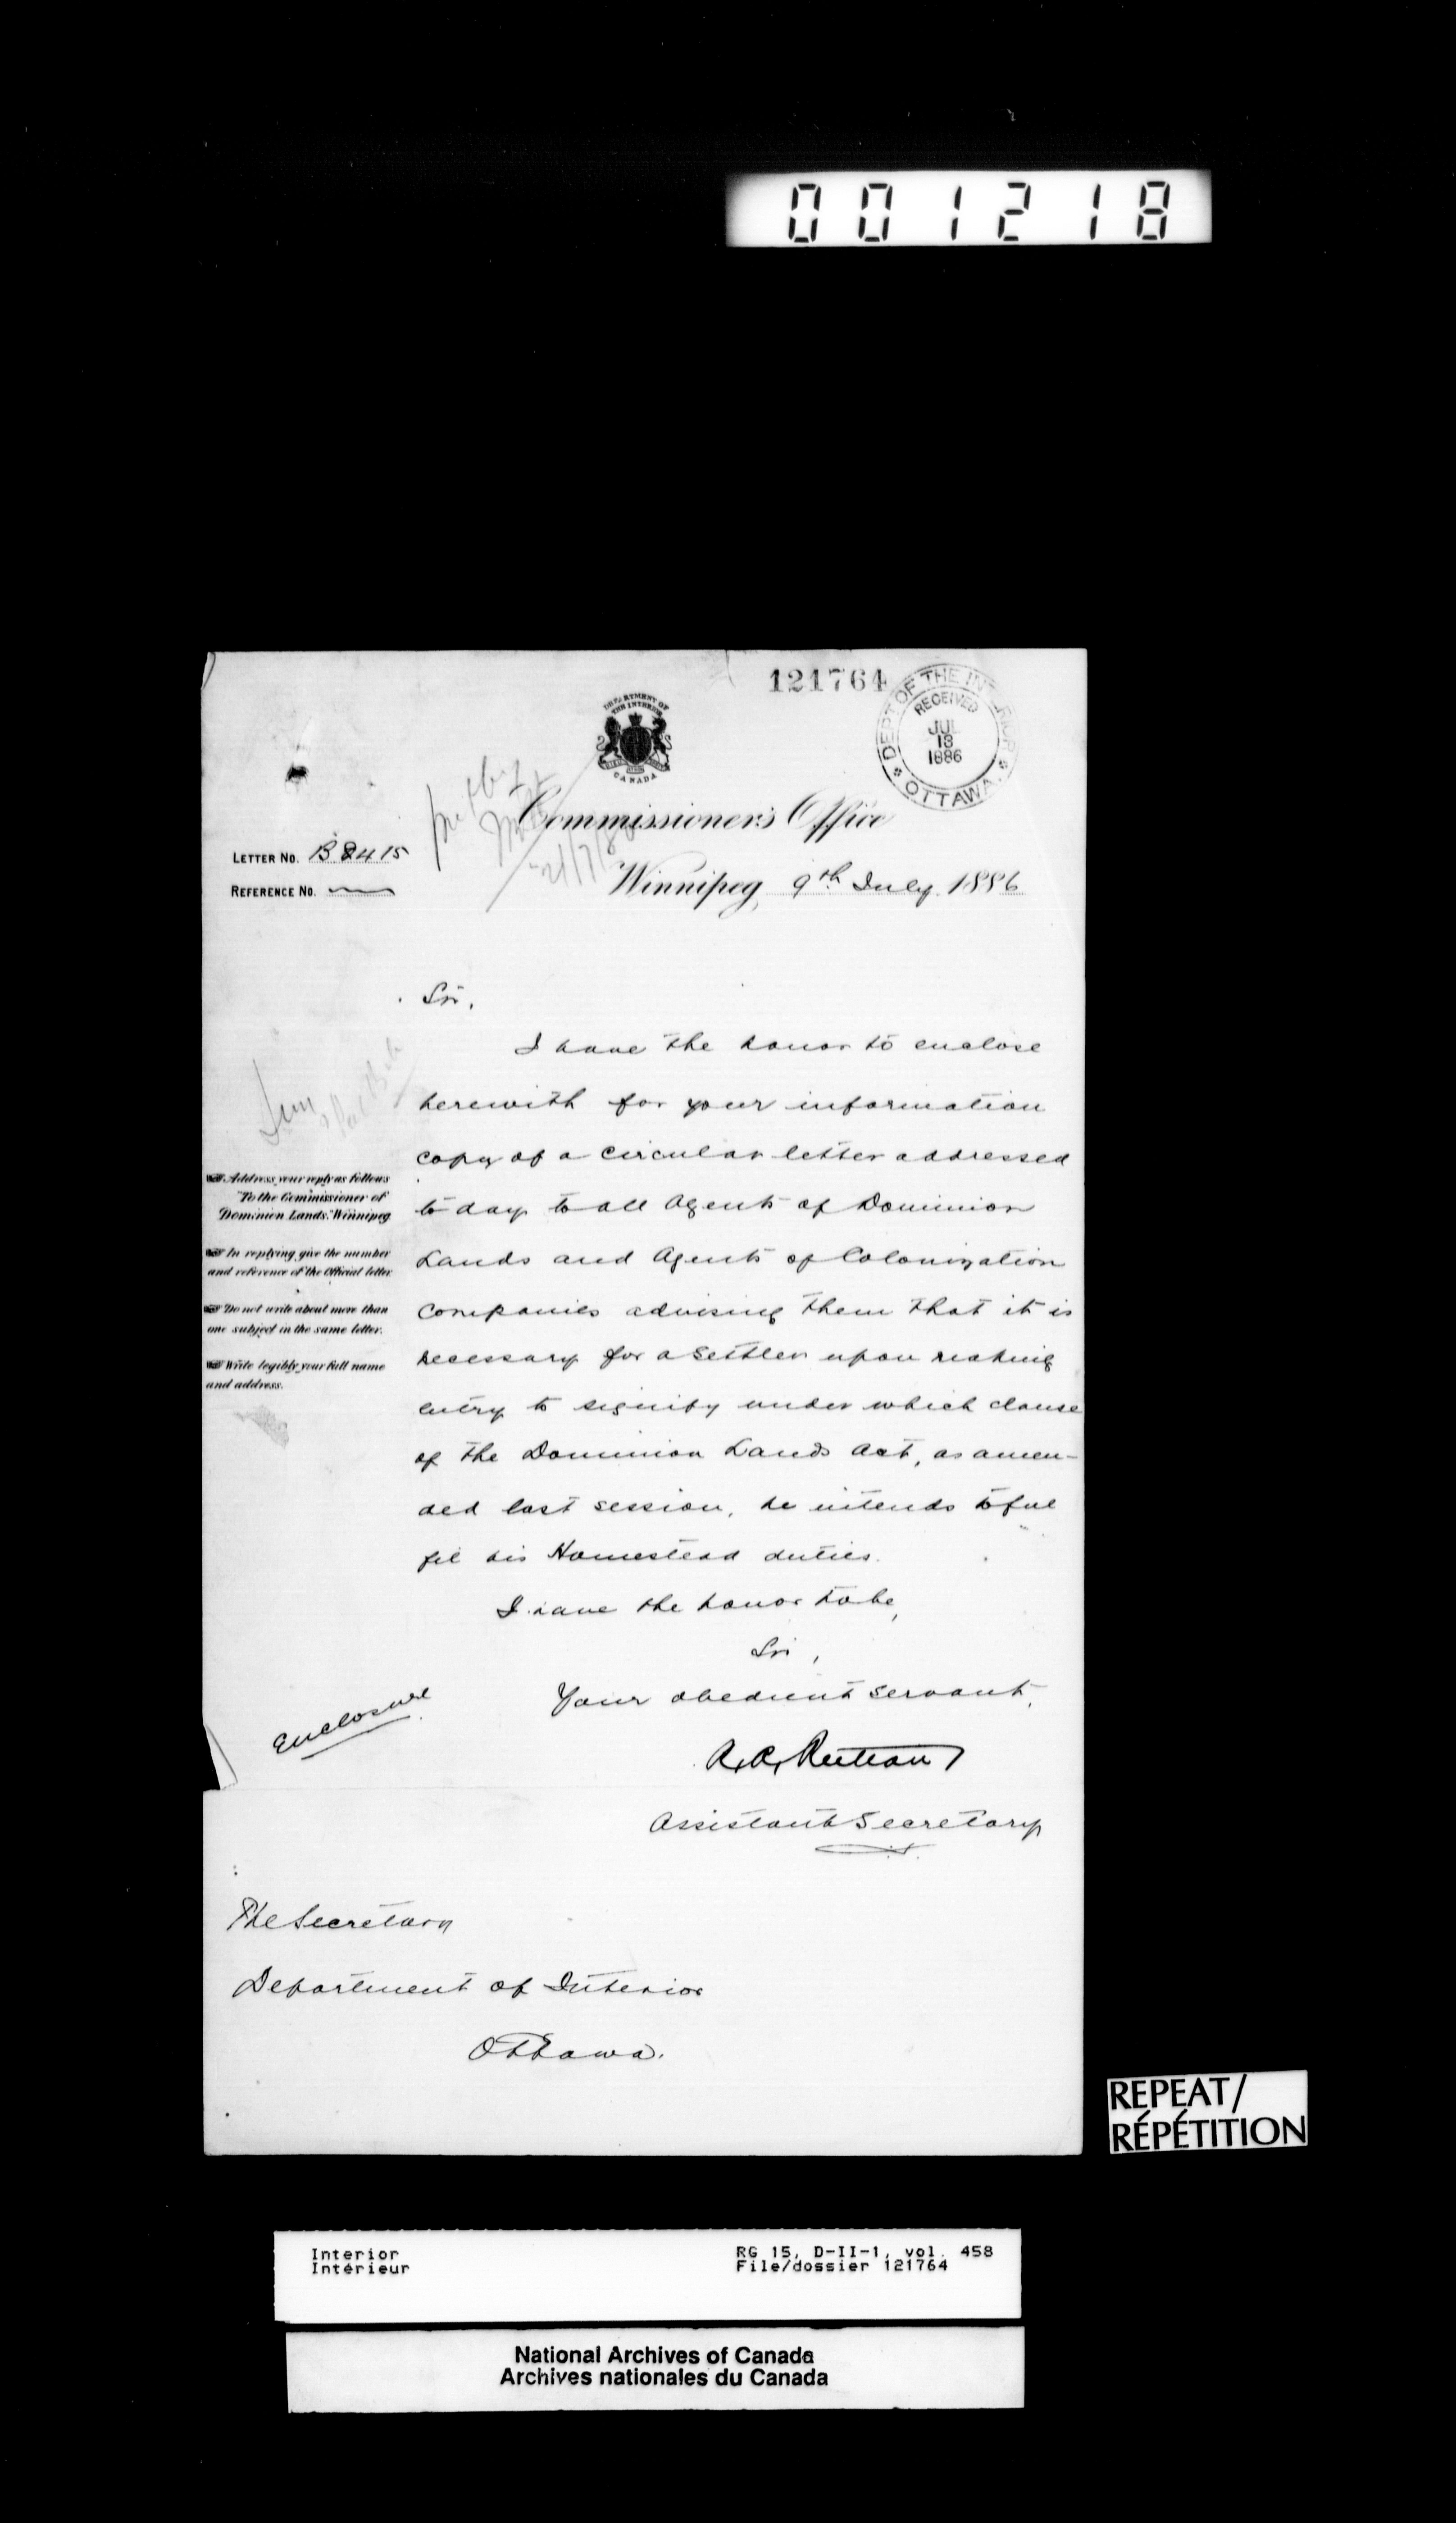 001218
121764
DEPT OF THE INTERIOR
RECEIVED
JUL
13
1886
OTTAWA
DEPARTMENT OF
THE INTERIOR
CANADA
Commissioner's Office
LETTER NO. B 8415
REFERENCE NO.
Winnipeg, 9th July 1886
Sir,
I have the honor to enclose
herewith for your information
copy of a circular letter addressed
to day to all Agents of Dominion
Lands and Agents of Colonization
Companies advising them that it is
necessary for a settler upon making
entry to signify under which clause
of the Dominion Lands Act, as amen-
ded last session, he intends to ful
fil his Homestead duties.
I have the honor to be,
Sir,
Your obedient servant,
Assistant Secretary
Enclosure
Address your reply as follows
"To the Commissioner of
Dominion Lands, Winnipeg
In replying give the number
and reference of the Official letter
Do not write about more than
one subject in the same letter.
Write legibly your full name
and address.
The Secretary
Department of Interior
Ottawa.
REPEAT/
RÉPÉTITION
Interior RG 15, D-II-1, vol. 458
Intérieur File/dossier 121764
National Archives of Canada
Archives nationales du Canada